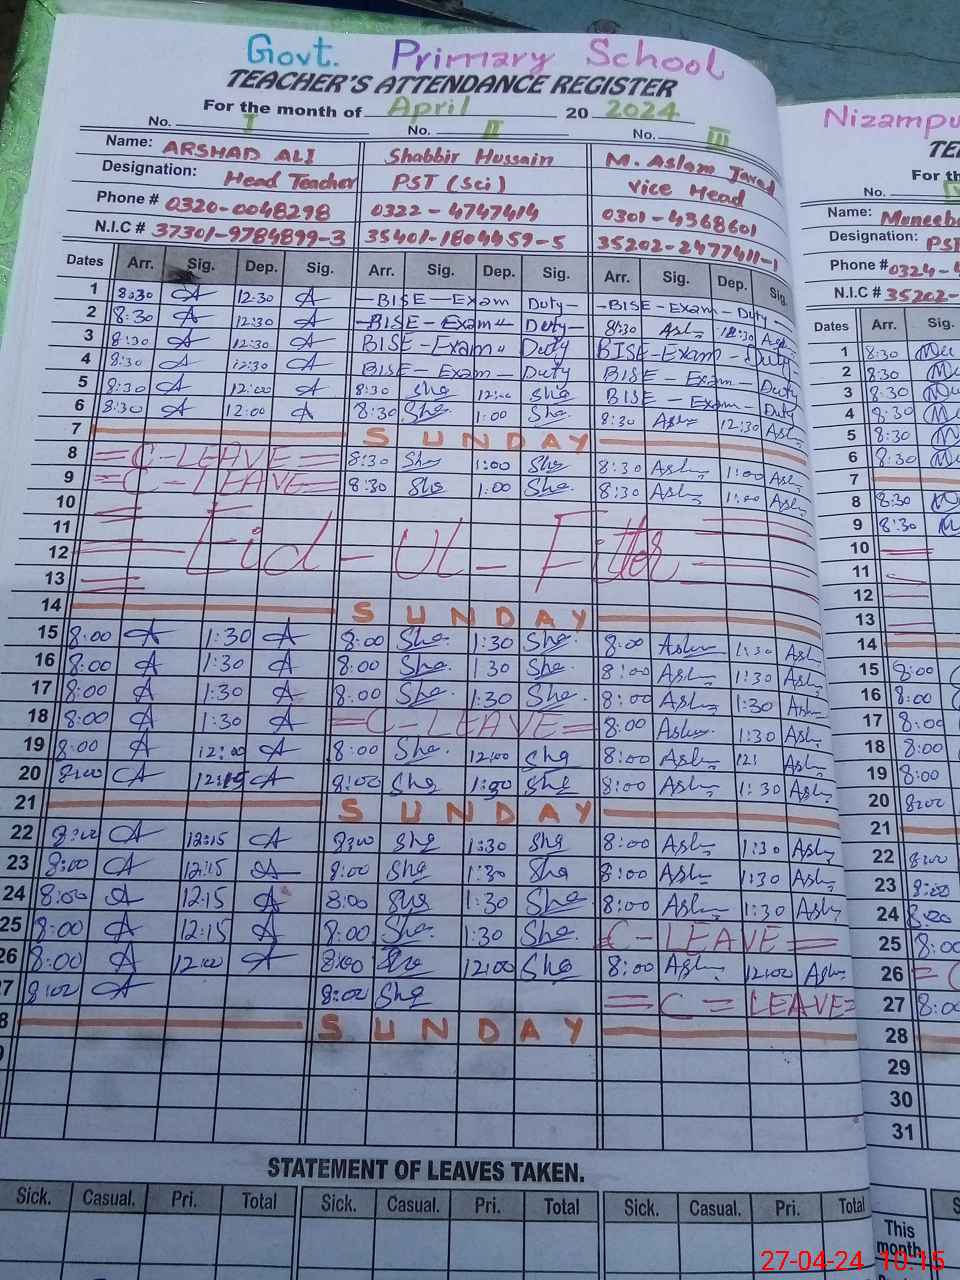 Govt. Primary School
TEACHER'S ATTENDANCE REGISTER
For the month of April 20 2024
No. I No. II No. III
Name: ARSHAD ALI Shabbir Hussain M. Aslam Javed
Designation: Head Teacher PST (Sci) Vice Head
Phone # 0320-0048298 0322-4747414 0301-4368601
N.I.C # 37301-9784899-3 35401-1804459-5 35202-2477411-1
Dates Arr. Sig. Dep. Sig. Arr. Sig. Dep. Sig. Arr. Sig. Dep. Sig.
1 8:30 A 12:30 A -BISE-Exam Duty- -BISE-Exam-Duty-
2 8:30 A 12:30 A -BISE-Exam Duty- 8:30 12:30
3 8:30 A 12:30 A BISE-Exam Duty BISE-Exam-Duty
4 8:30 A 12:30 A BISE-Exam-Duty BISE-Exam-Duty
5 8:30 A 12:00 A 8:30 Sha 12:00 Sha BISE-Exam-Duty
6 8:30 A 12:00 A 8:30 Sha. 1:00 Sha. 8:30 12:30
7 SUNDAY
8 =C-LEAVE= 8:30 Sha 1:00 Sha 8:30 1:00
9 =C-LEAVE= 8:30 Sha 1:00 Sha. 8:30 1:00
10
11 Eid-Ul-Fitter
12
13
14 SUNDAY
15 8:00 A 1:30 A 8:00 Sha. 1:30 Sha. 8:00 1:30
16 8:00 A 1:30 A 8:00 Sha. 1:30 Sha. 8:00 1:30
17 8:00 A 1:30 A 8:00 Sha. 1:30 Sha. 8:00 1:30
18 8:00 A 1:30 A =C-LEAVE= 8:00 1:30
19 8:00 A 12:00 A 8:00 Sha. 12:00 Sha 8:00
20 8:00 A 12:15 A 8:00 Sha Sha 8:00 1:30
21 SUNDAY
22 8:00 A 12:15 A 8:00 Sha 1:30 Sha 8:00 1:30
23 8:00 A 12:15 A 8:00 Sha 1:30 Sha 8:00 1:30
24 8:00 A 12:15 A 8:00 Sha 1:30 Sha. 8:00 1:30
25 8:00 A 12:15 A 8:00 Sha. 1:30 Sha. =C-LEAVE=
26 8:00 A 12:00 A 8:00 Sha 12:00 Sha 8:00 12:00
27 8:00 A 8:00 Sha =C=LEAVE=
8 SUNDAY
STATEMENT OF LEAVES TAKEN.
Sick. Casual. Pri. Total Sick. Casual. Pri. Total Sick. Casual. Pri. Total
Nizampu
TE
For th
No.
Name: Muneeba
Designation: PS
Phone # 0324-
N.I.C # 35202-
Dates Arr. Sig.
1 8:30
2 8:30
3 8:30
4 8:30
5 8:30
6 8:30
7
8 8:30
9 8:30
10
11
12
13
14
15 8:00
16 8:00
17 8:00
18 8:00
19 8:00
20 8:00
21
22 8:00
23 8:00
24 8:00
25 8:00
26
27 8:00
28
29
30
31
This
month
27-04-24 10:15